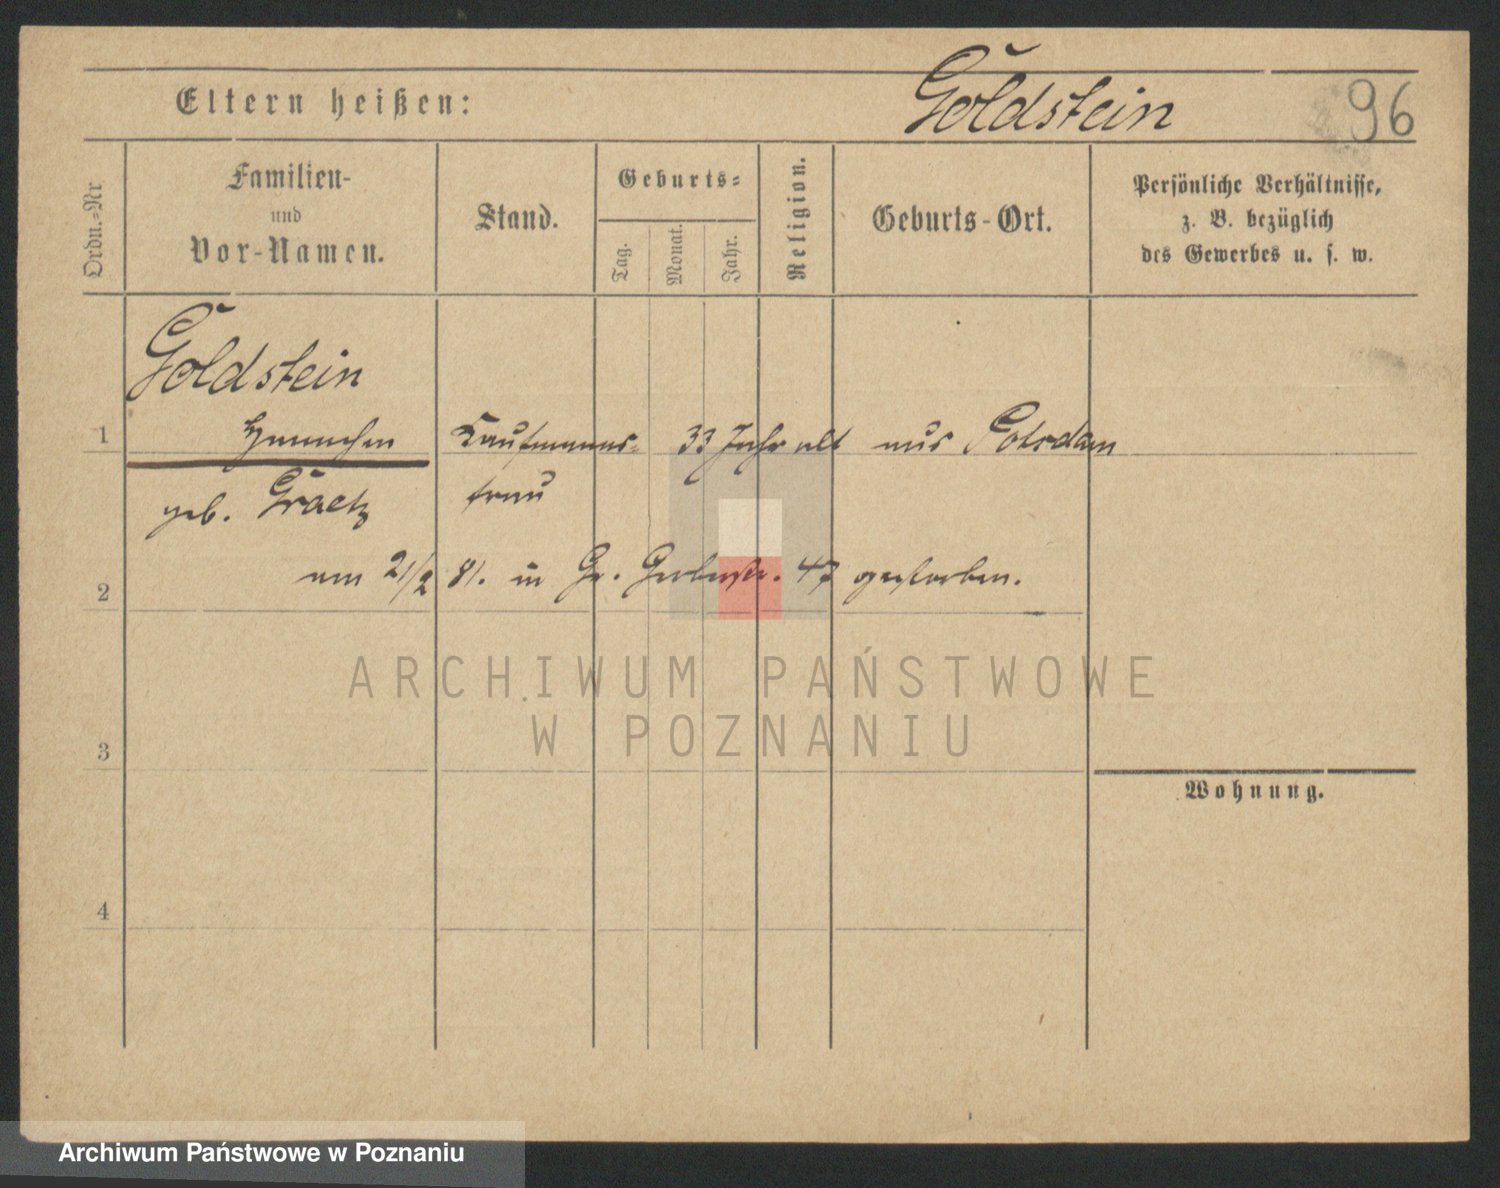 Eltern heißen:
Goldstein
96
Ordn.=Nr
Familien-
und
Vor-Namen.
Stand.
Geburts=
Tag.
Monat.
Jahr.
Religion.
Geburts-Ort.
Persönliche Verhältnisse,
z. B. bezüglich
des Gewerbes u. s. w.
Goldstein
1 Hannchen Kaufmanns= 33 Jahr alt aus Potsdam
geb. Graetz frau
am 21/2 81. in Gr. Gerberstr. 47 gestorben.
2
ARCHIWUM PAŃSTWOWE
W POZNANIU
3
Wohnung.
4
Archiwum Państwowe w Poznaniu